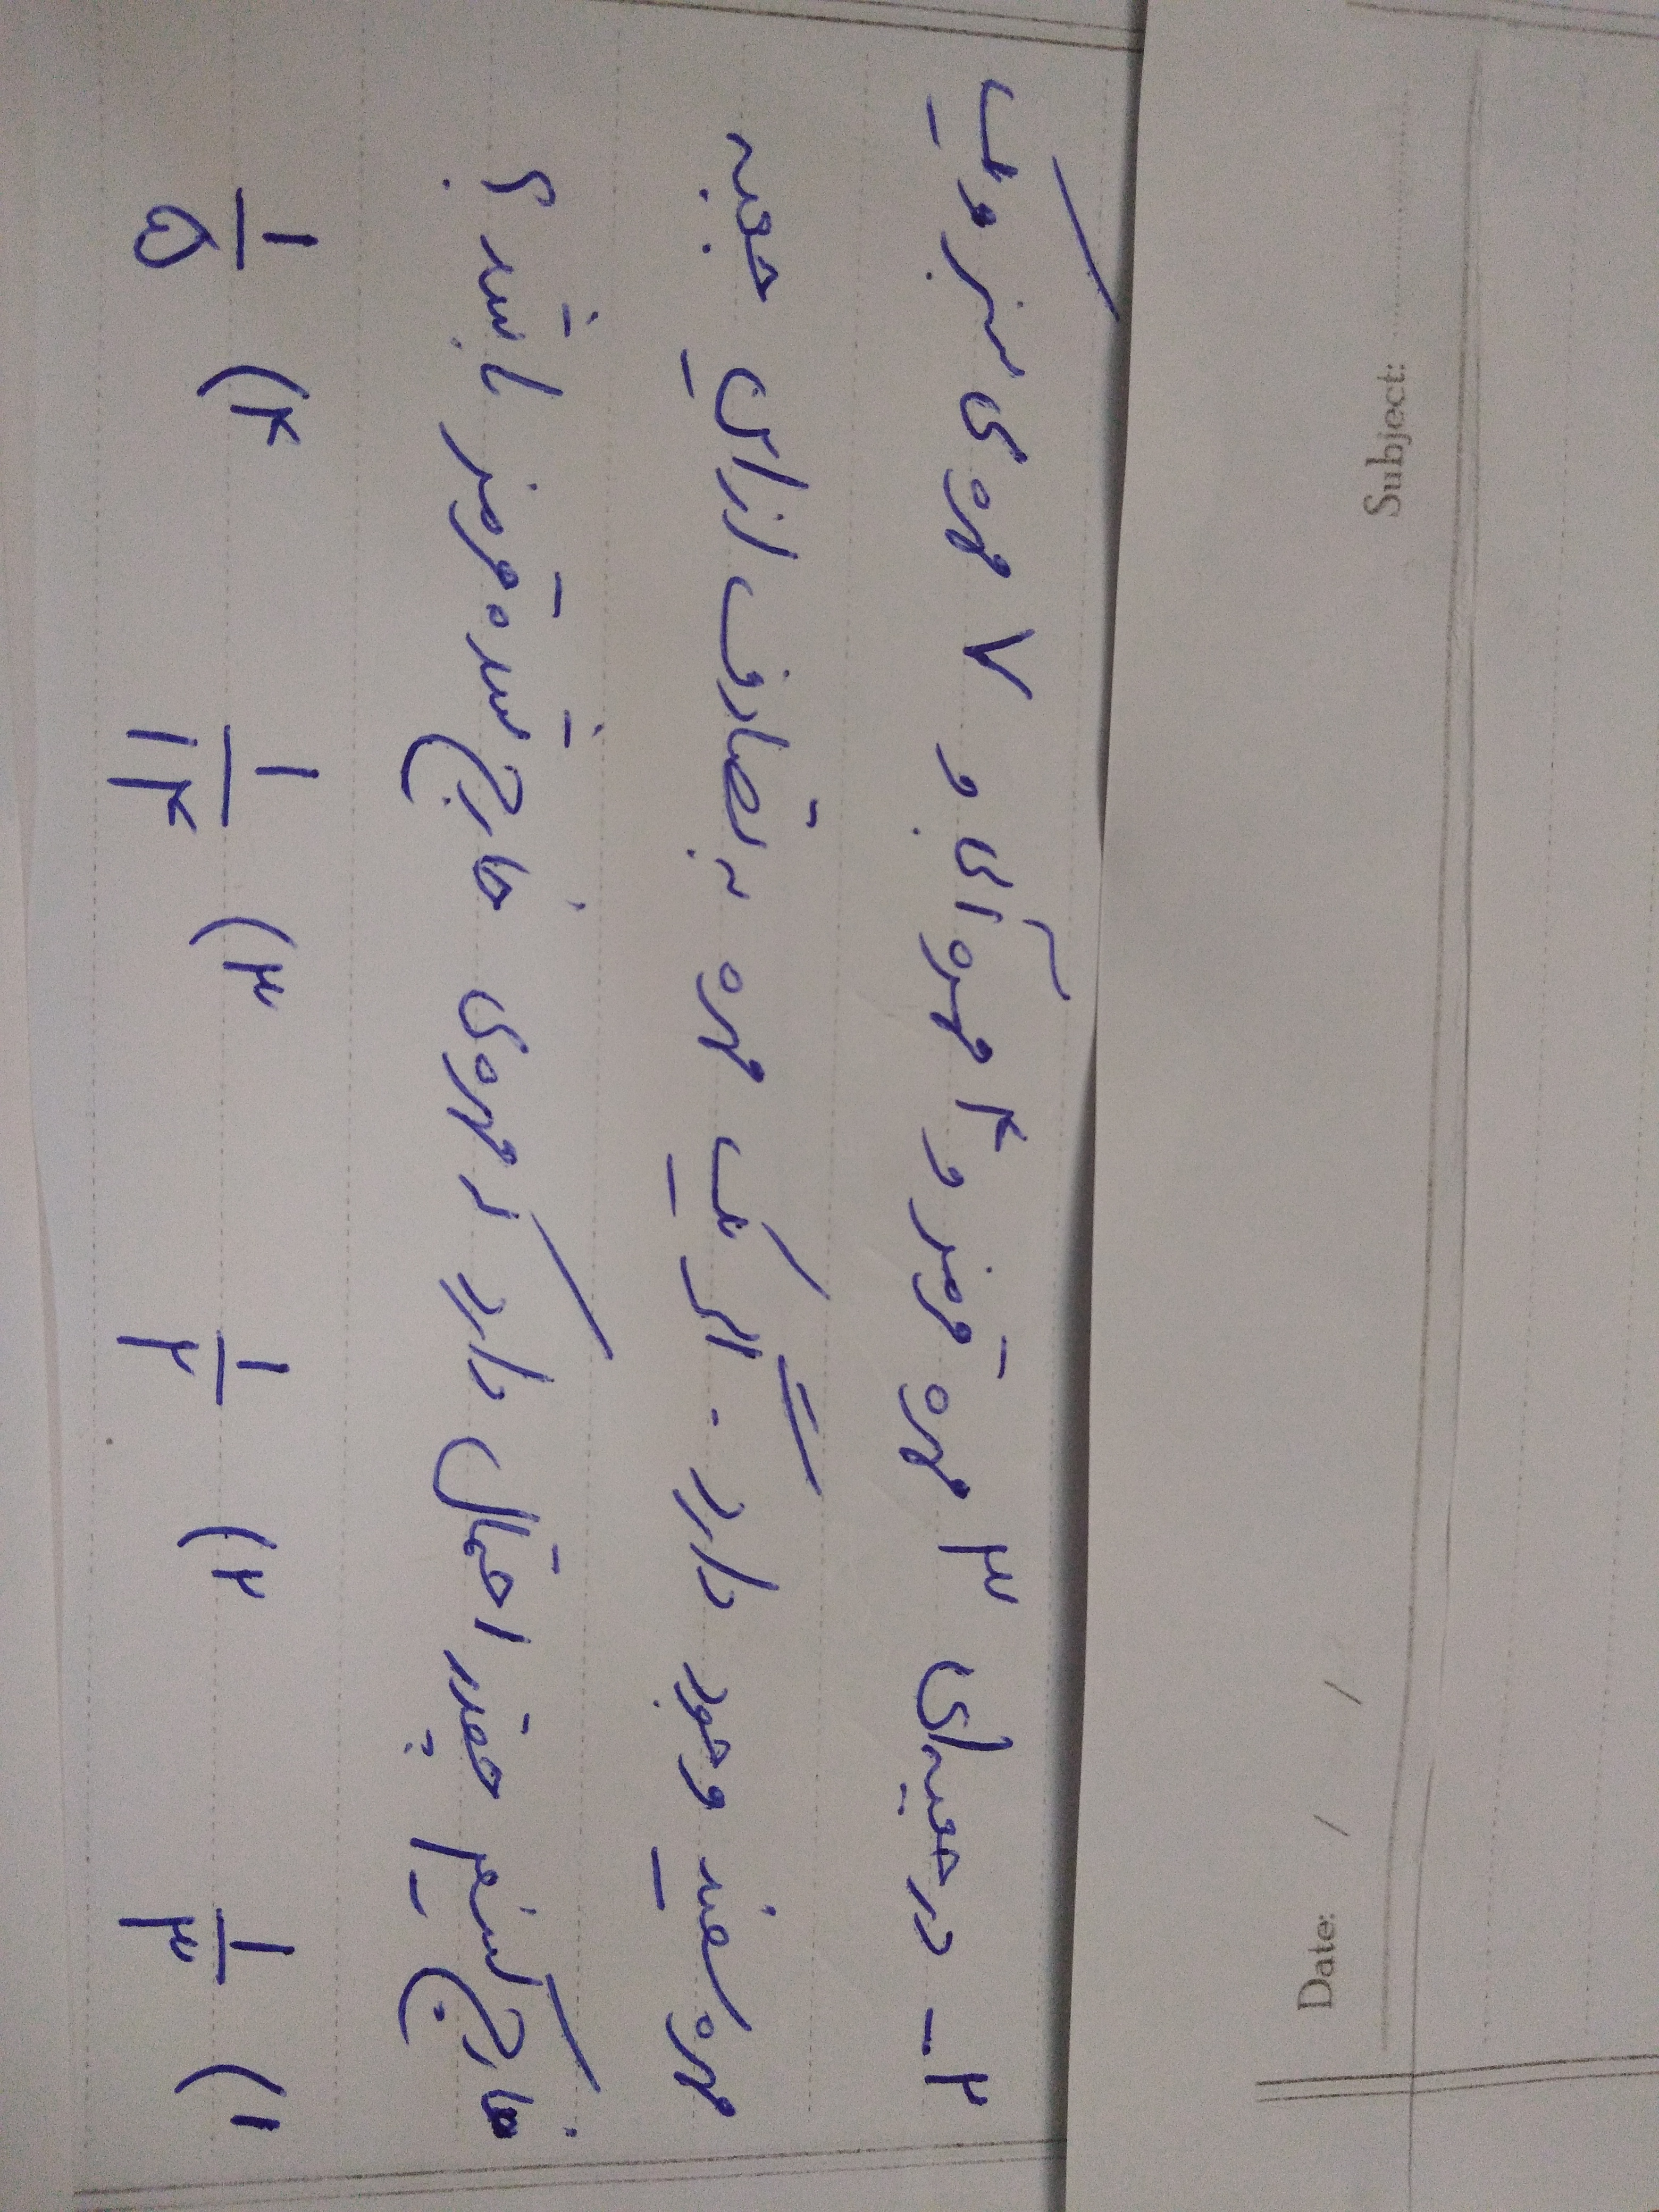 Subject:
Date: / /
۲ـ در جعبه‌ای ۳ مهره قرمز و ۴ مهره آبی و ۷ مهره‌ی سبز و یک
مهره سفید وجود دارد. اگر یک مهره به تصادف از این جعبه
خارج کنیم چقدر احتمال دارد که مهره‌ی خارج شده قرمز باشد؟
۱) ۱/۳ ۲) ۱/۲ ۳) ۱/۱۴ ۴) ۱/۵